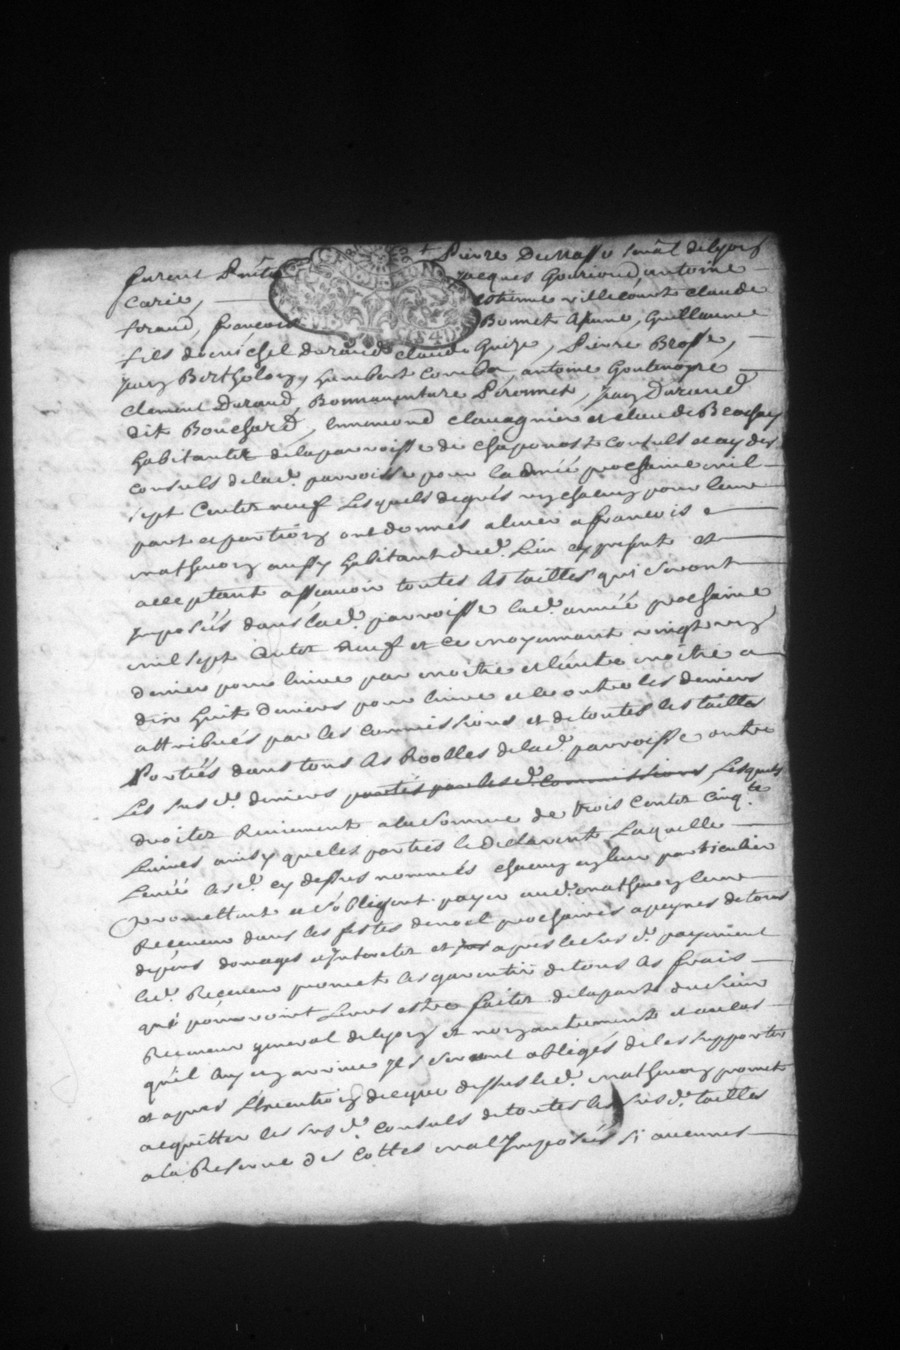 + Pierre Dumasse senat de lyon
furent Prnts Jacques Gourioud, antoine
Carie, Estienne villecourt claude
foraud, francois Bonnet Aduné, Guillaume
fils de michel durand claude Guize, Pierre Brosse,
Jean Bertholon, humbert combe, antoine Goutenoyre
Clement Durand, Bonnaventure Peronnet, Jean Durand
dit Bouchard, Ennemond clavagnier et claude Beachay
habitantz de la parroisse de chaponost consuls et ay des
consuls de lad. parroisse pour lannée prochaine mil
sept Centz neuf Lesquels de grés un chacun pour leur
part et portion ont donnés a lever a francois
mathieux aussy habitant dud. Lieu cy present et
acceptant assavoir toutes les tailles qui seront
Imposés dans lad. parroisse lad. année prochaine
mil sept Centz Neuf et ce moyennant vingt un
denier pour livre par moitie et lautre moitie a
dix huit deniers pour livre et ce outre les deniers
attribués par les Commissions et de toutes les tailles
Portées dans tous les Roolles de lad. parroisse outre
Les sus d. deniers portés par lesd. Commissions, Lesquels
droitz Reviennent a la somme de trois Centz Cinqte
Livres ainsy que les parties le declarent Laquelle
Levée les d. cy dessus nommés chacun en leur particulier
promettent et s'obligent payer aud. mathieux leur
Receveur dans les festes de noel prochaines a peynes de tous
depens domages et Interetz et apres le sus d. payement
led. Receveur promet les garentir de tous les frais
que pourroient Leurs estre faitz de la part du sieur
Receveur general de lyon et moyennement et au cas
quil Luy en arrive Ils seront obligés de les supporter
et apres Lexecution de ce que dessus led. mathieux promet
acquitter les sus d. consuls de toutes les sus d. tailles
a la Reserve des Cottes mal Imposées si aucunes